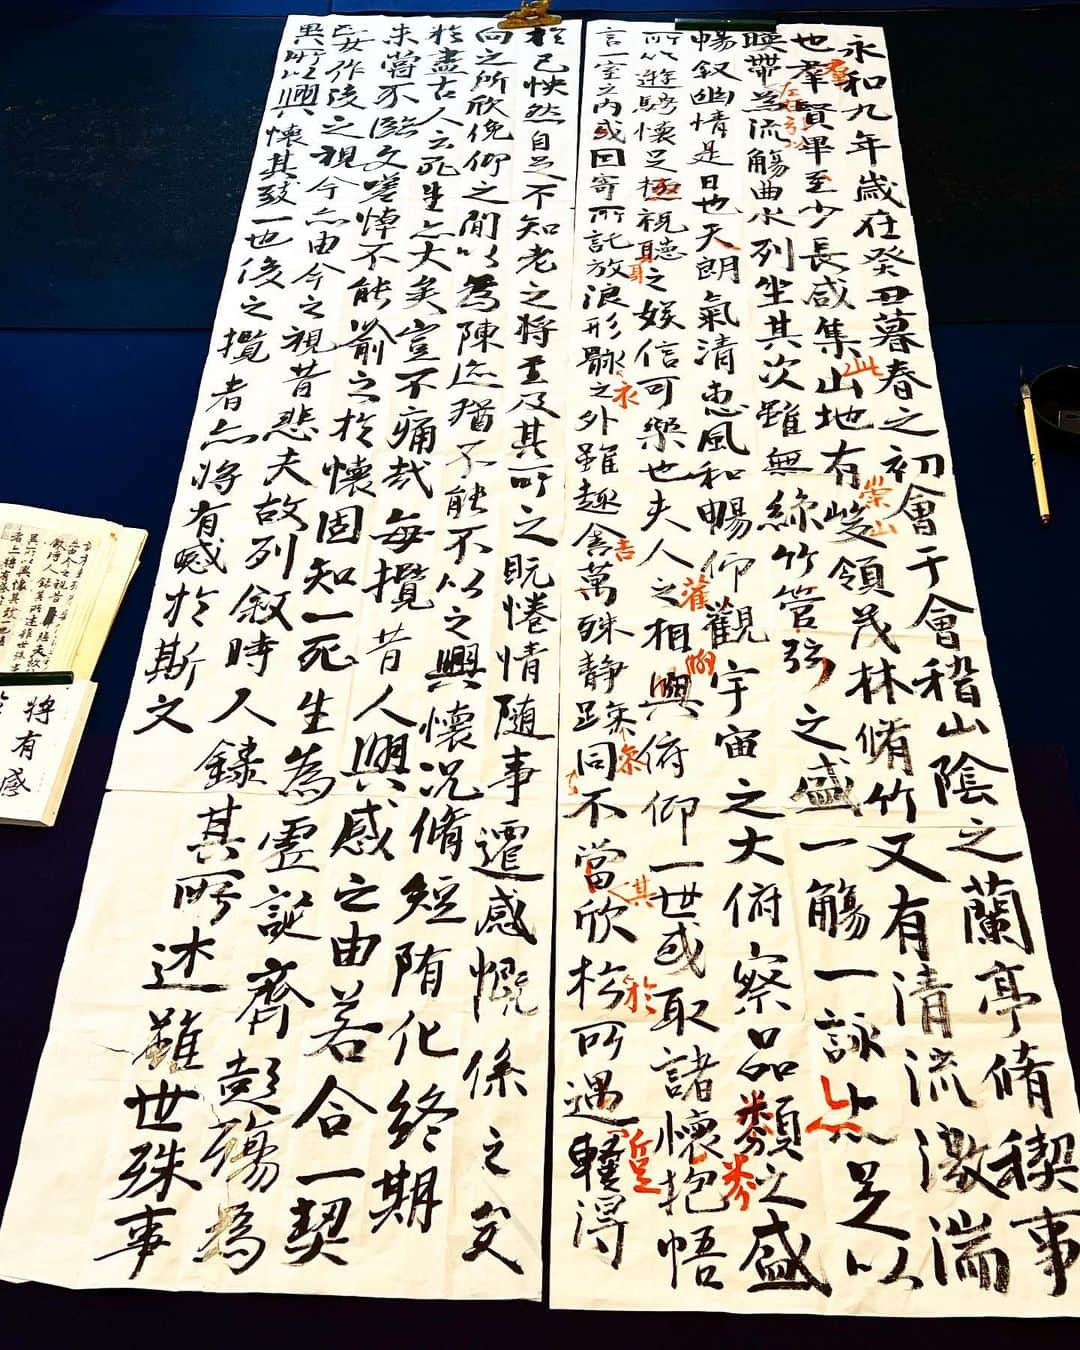 永和九年歲在癸丑暮春之初會于會稽山陰之蘭亭脩稧事
也羣賢畢至少長咸集山地有峻領茂林脩竹又有清流激湍
暎帶為流觴曲水列坐其次雖無絲竹管弦之盛一觴一詠亦足以
暢叙幽情是日也天朗氣清惠風和暢仰觀宇宙之大俯察品類之盛
所以遊騁懷足極視聽之娛信可樂也夫人之相興俯仰一世或取諸懷抱悟
言一室之内或回寄所託放浪形骸之外雖趣舎萬殊静躁同不當欣於所遇蹔得
於己怏然自足不知老之将至及其所之既惓情随事遷感慨係之矣
向之所欣俛仰之間以為陳迹猶不能不以之興懷况脩短随化終期
於盡古人云死生亦大矣豈不痛哉每攬昔人興感之由若合一契
未嘗不臨文嗟悼不能喻之於懷固知一死生為虛誕齊彭殤為
妄作後之視今亦由今之視昔悲夫故列叙時人録其所述雖世殊事
異所以興懷其致一也後之攬者亦将有感於斯文
羣
此
崇山
其
於
将有感